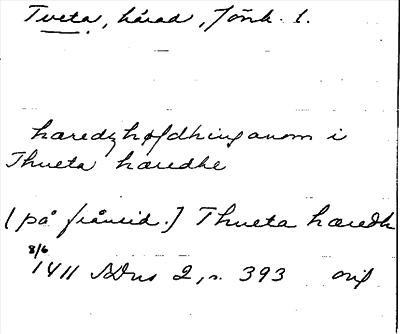 Tveta, härad, Jönk. l.
hæredzhøfdhinganom i
Thueta hæredhe
(på frånsid.) Thueta hæredh
8/6
1411 SDns 2, s. 393 orig